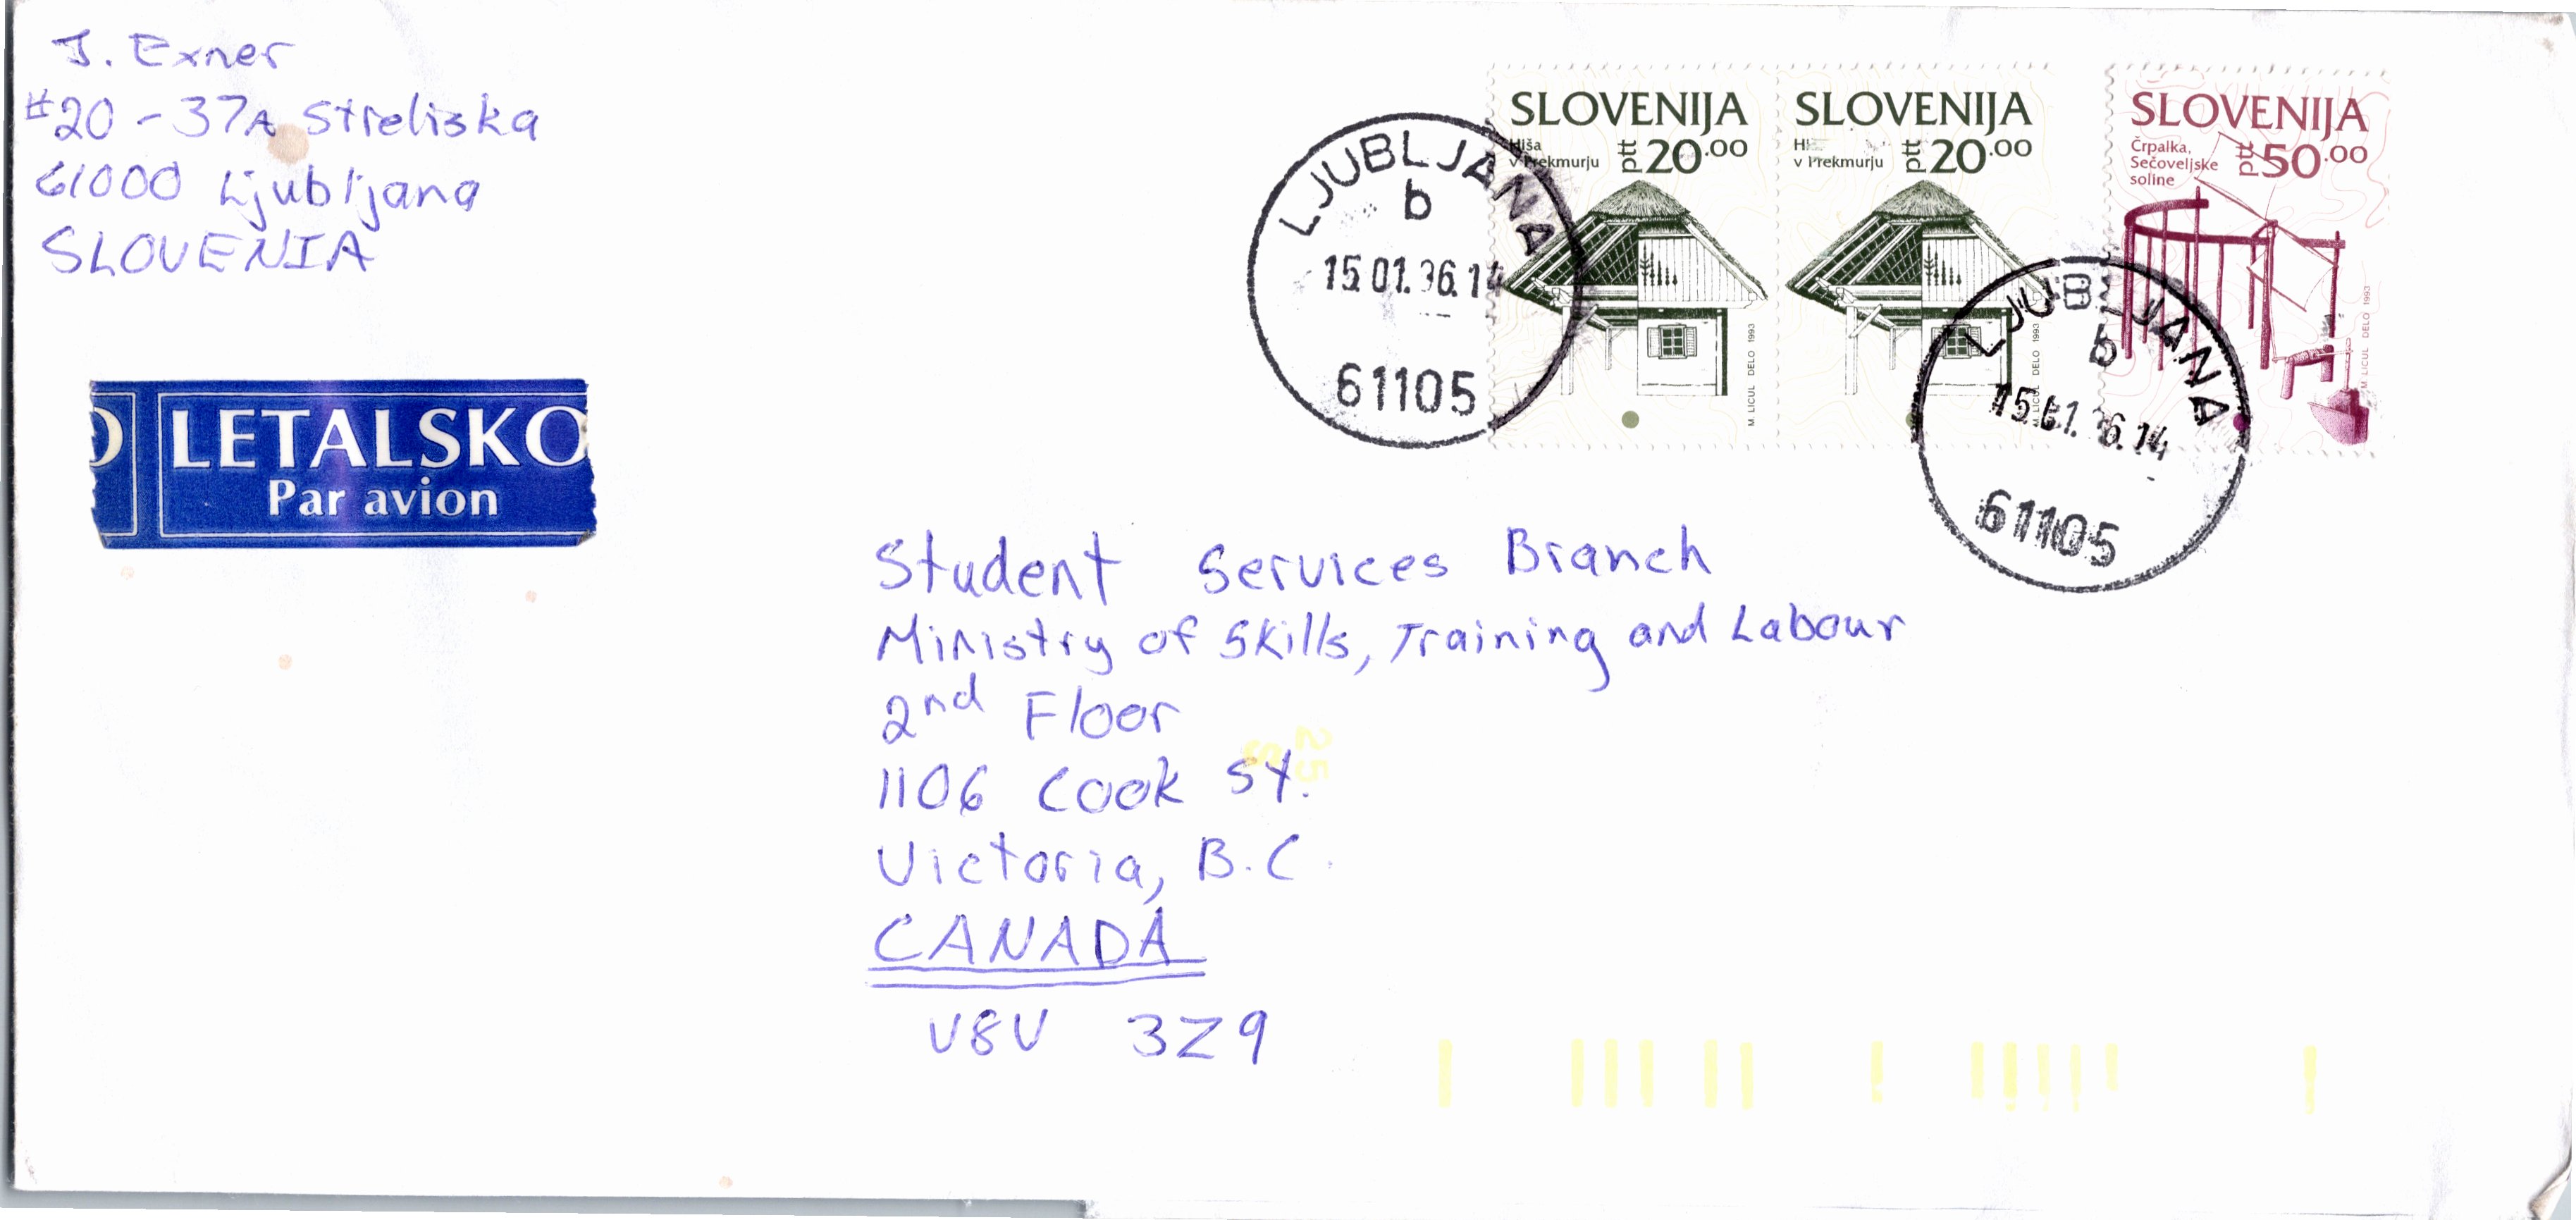 J. Exner
#20 - 37A Streliska
61000 Ljubljana
SLOVENIA
LETALSKO
Par avion
LJUBLJANA
b
15.01.96.14
61105
SLOVENIJA
Hiša
v Prekmurju
ptt 20.00
M. LICUL DELO 1993
SLOVENIJA
v Prekmurju
ptt 20.00
M. LICUL DELO 1993
SLOVENIJA
Črpalka,
Sečoveljske
soline
ptt 50.00
M. LICUL DELO 1993
LJUBLJANA
b
15.01.96.14
61105
Student Services Branch
Ministry of Skills, Training and Labour
2nd Floor
1106 Cook St.
Victoria, B.C.
CANADA
V8V 3Z9